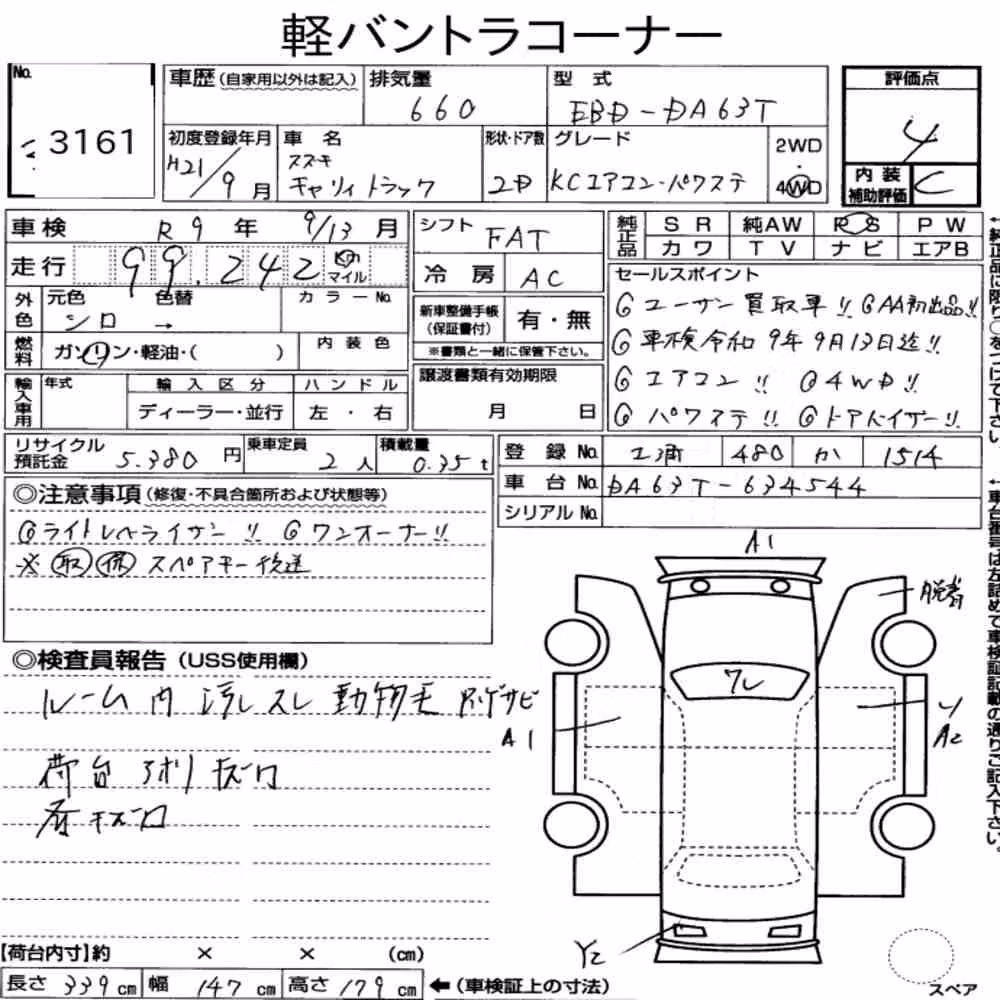 軽バントラコーナー
No.
3161
車歴 (自家用以外は記入)
排気量
660
型 式
EBD-DA63T
評価点
4
初度登録年月
H21/9月
車 名
スズキ
キャリィトラック
形状・ドア数
2D
グレード
KCエアコン・パワステ
2WD
・
4WD
内 装
補助評価
C
車検 R9年 9/13月
走行 99,242 Km
マイル
シフト FAT
冷 房 AC
純正品
SR 純AW PS PW
カワ TV ナビ エアB
外色
元色 色替 カラーNo.
シロ →
燃料
ガソリン・軽油・( )
内 装 色
新車整備手帳
(保証書付)
有・無
※書類と一緒に保管下さい。
セールスポイント
◎ユーザー買取車!! ◎AA初出品!!
◎車検令和9年9月13日迄!!
◎エアコン!! ◎4WD!!
◎パワステ!! ◎ドアバイザー!!
輸入車用
年式
輸入区分
ハンドル
ディーラー・並行
左・右
譲渡書類有効期限
月 日
リサイクル
預託金
5.380円
乗車定員
2人
積載量
0.35t
登 録 No. 480 か 1514
車 台 No. DA63T-634544
シリアル No.
◎注意事項 (修復・不具合箇所および状態等)
◎ライトレベライザー!! ◎ワンオーナー!!
※ 取 保 スペアキー後送
◎検査員報告 (USS使用欄)
ルーム内 汚レ スレ 動物毛 サビ
荷台 キズ凹
キズ凹
A1
脱着
ワレ
A1
A2
Y2
スペア
【荷台内寸】約 × × (cm)
長さ 339cm 幅 147cm 高さ 179cm ←(車検証上の寸法)
←純正品に限り○をつけて下さい。
←車台番号は左詰めで車検証記載の通りご記入下さい。